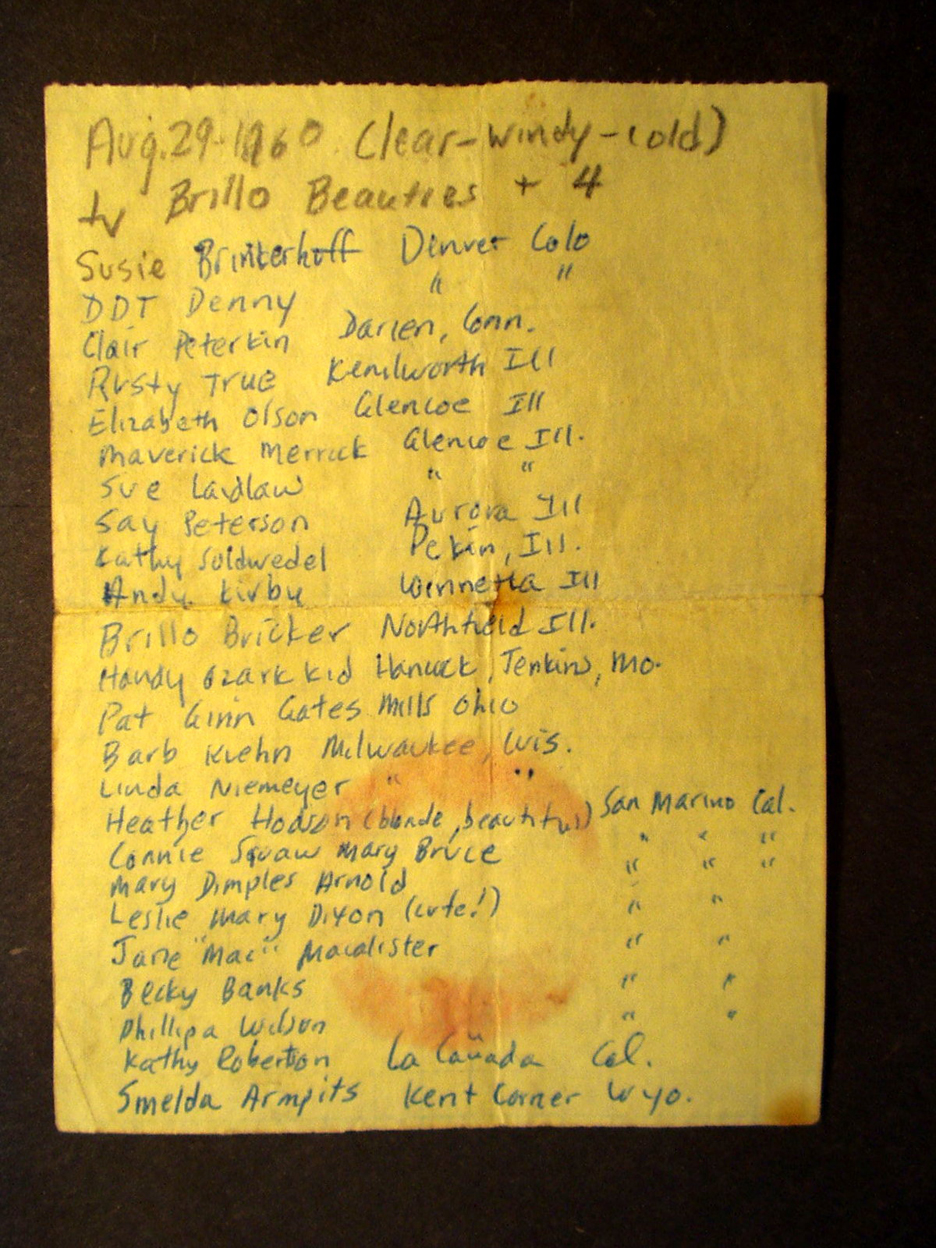 Aug. 29-1960 Clear-windy-cold)
Brillo Beauties + 4
Susie Brinkerhoff Dinver Colo
DDT Denny " "
Clair Peterkin Darien, Conn.
Rusty True Kenilworth Ill
Elizabeth Olson Glencoe Ill
Maverick Merrick Glencoe Ill.
Sue Laidlaw " "
Say Peterson Aurora Ill
Kathy Soldwedel Pekin, Ill.
Andy Kirby Winnetka Ill
Brillo Bricker Northfield Ill.
Howdy Ozark Kid Hancock, Jenkins, Mo.
Pat Ginn Gates Mills Ohio
Barb Kuehn Milwaukee, Wis.
Linda Niemeyer " "
Heather Hodson (blonde, beautiful) San Marino Cal.
Connie Squaw Mary Bruce " " "
Mary Dimples Arnold " " "
Leslie Mary Dixon (cute!) " "
Jane "Mac" Macalister " "
Becky Banks " "
Phillipa Wilson " "
Kathy Roberton La Cañada Cal.
Smelda Armpits Kent Corner Wyo.